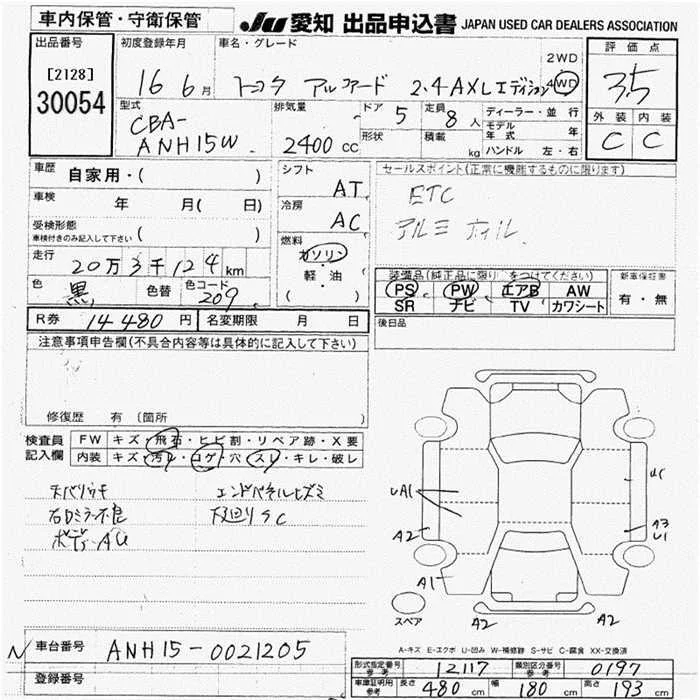 車内保管・守衛保管
JU 愛知 出品申込書 JAPAN USED CAR DEALERS ASSOCIATION
出品番号
[2128]
30054
初度登録年月
16 6月
車名・グレード
トヨタ アルファード 2.4 AXLエディション
2WD
4WD
評価点
3.5
外装 内装
C C
型式
CBA-
ANH15W
排気量
2400 cc
ドア 5
形状
定員 8 人
積載 kg
ディーラー・並行
モデル年式 年
ハンドル 左・右
車歴 自家用・( )
車検 年 月( 日)
受検形態
車検付きのみ記入して下さい ( )
走行 20万3千124km
色 黒 色替 色コード 209
シフト
AT
冷房
AC
燃料
ガソリン
・
軽・油
( )
セールスポイント(正常に機能するものに限ります)
ETC
アルミホイル
装備品(純正品に限り○をつけてください)
PS PW エアB AW
SR ナビ TV カワシート
新車保証書
有・無
R券 14480円 名変期限 月 日
後日品
注意事項申告欄(不具合内容等は具体的に記入して下さい)
修復歴 有 (箇所 )
検査員
記入欄
FW キズ・飛石・ヒビ割・リペア跡・X要
内装 キズ・汚れ・コゲ・穴・スレ・キレ・破レ
天バリウキ エンドパネルヒズミ
右ロミラー不良 下廻りSC
ボデーAU
UA1
A2
A1
U1
A3
U1
スペア
A2
A2
A-キズ E-エクボ U-凹み W-補修跡 S-サビ C-腐食 XX-交換済
N
車台番号 ANH15-0021205
登録番号
型式指定番号
参考
12117
類別区分番号
参考
0197
車庫証明用
参考
長さ 480 cm 幅 180 cm 高さ 193 cm